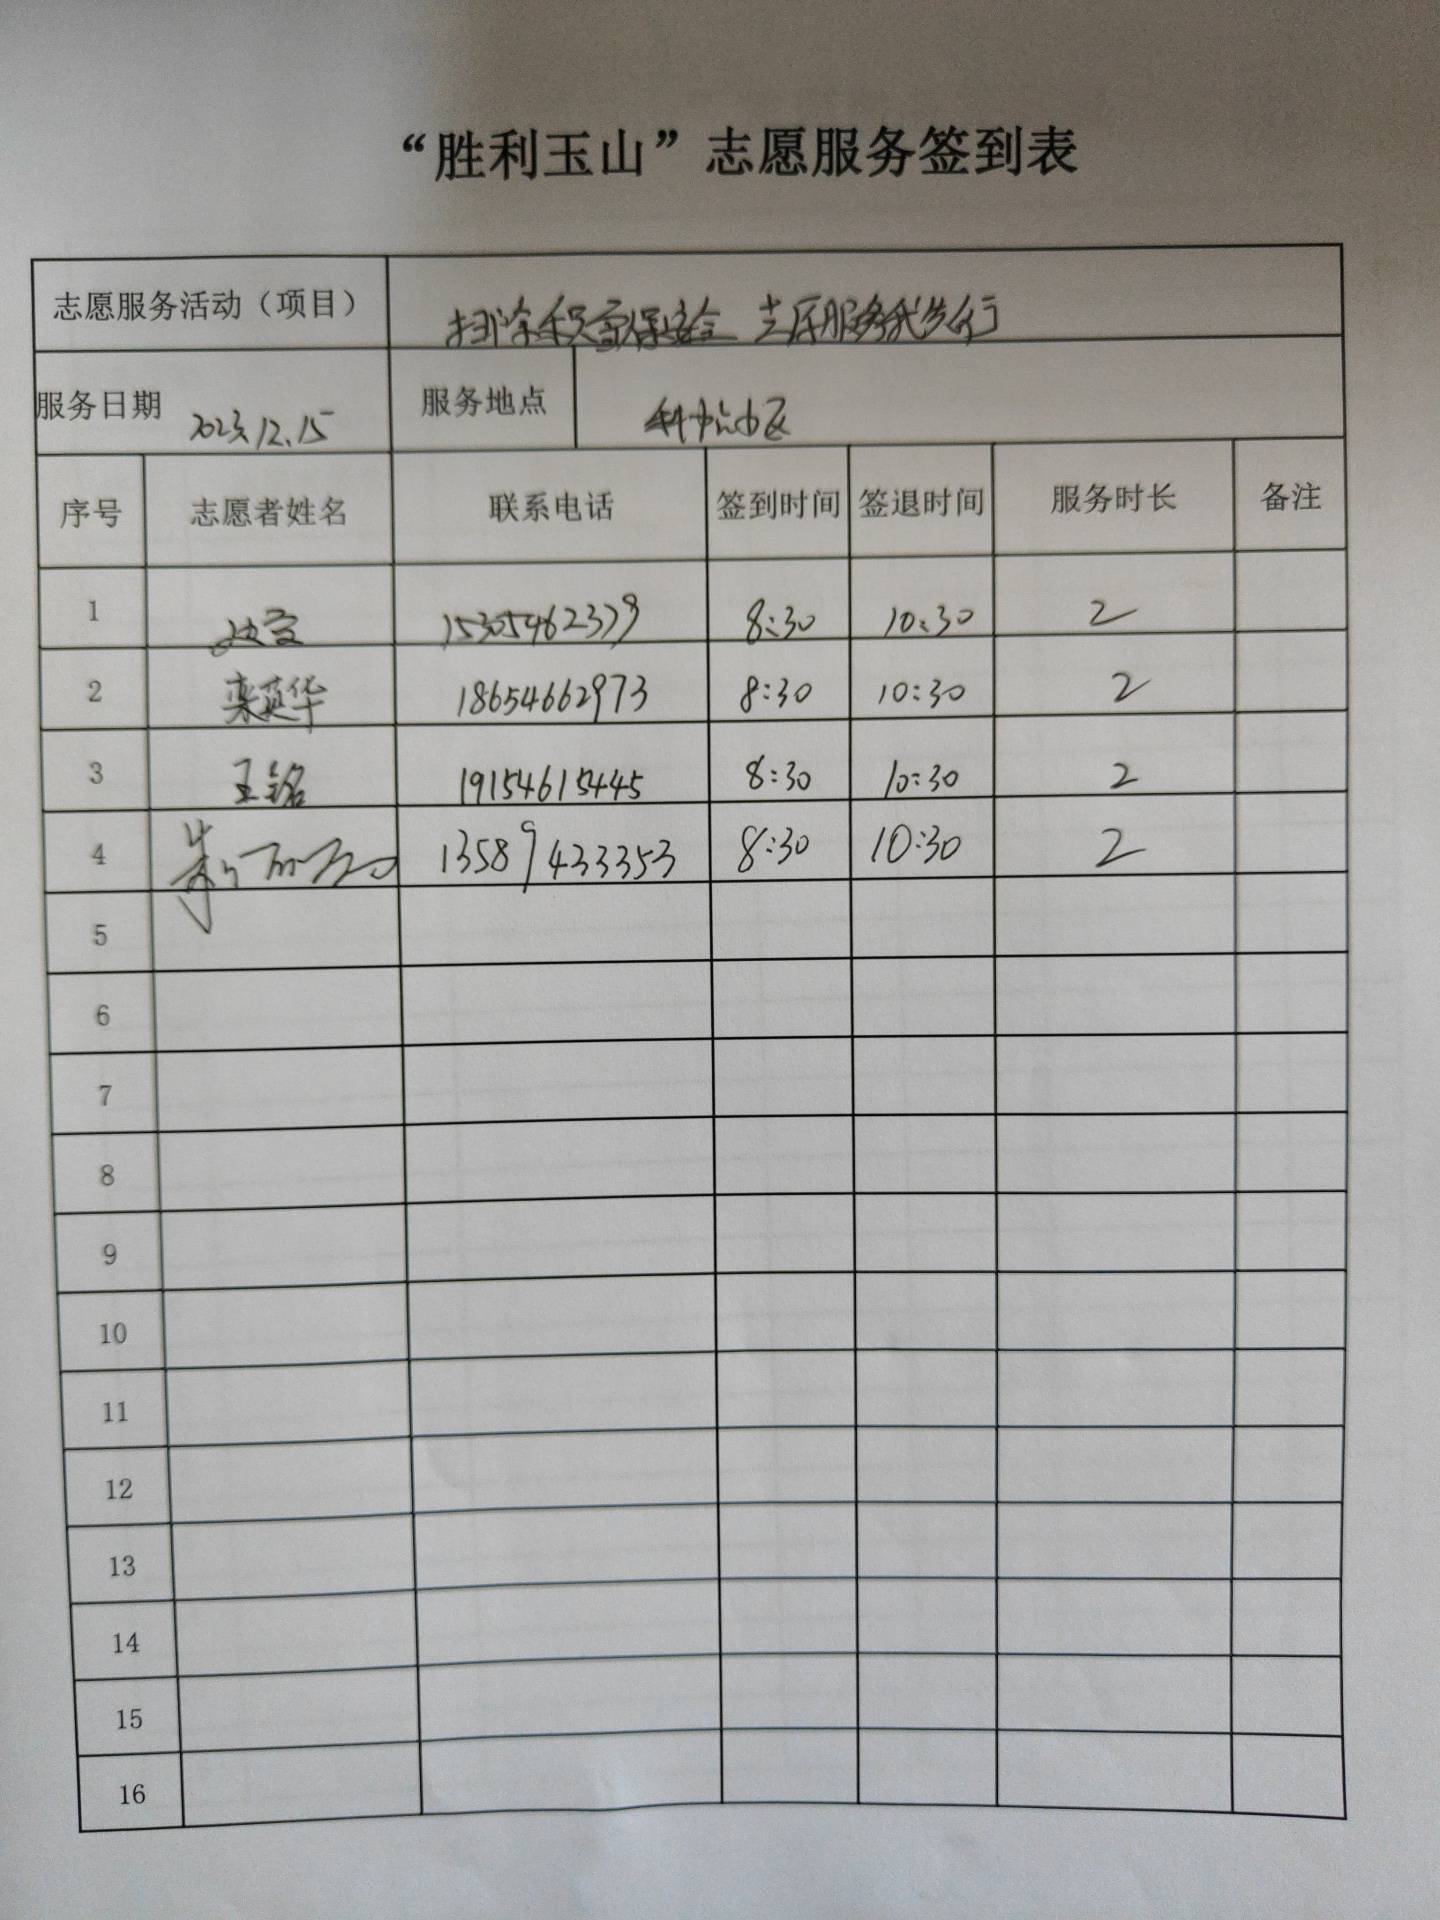 “胜利玉山”志愿服务签到表
志愿服务活动（项目） 扫除积雪保安全 志愿服务我先行
服务日期 2023.12.15 服务地点 小区
序号 志愿者姓名 联系电话 签到时间 签退时间 服务时长 备注
1 15305462379 8:30 10:30 2
2 栾英华 18654662973 8:30 10:30 2
3 王铭 19154615445 8:30 10:30 2
4 13589433353 8:30 10:30 2
5
6
7
8
9
10
11
12
13
14
15
16